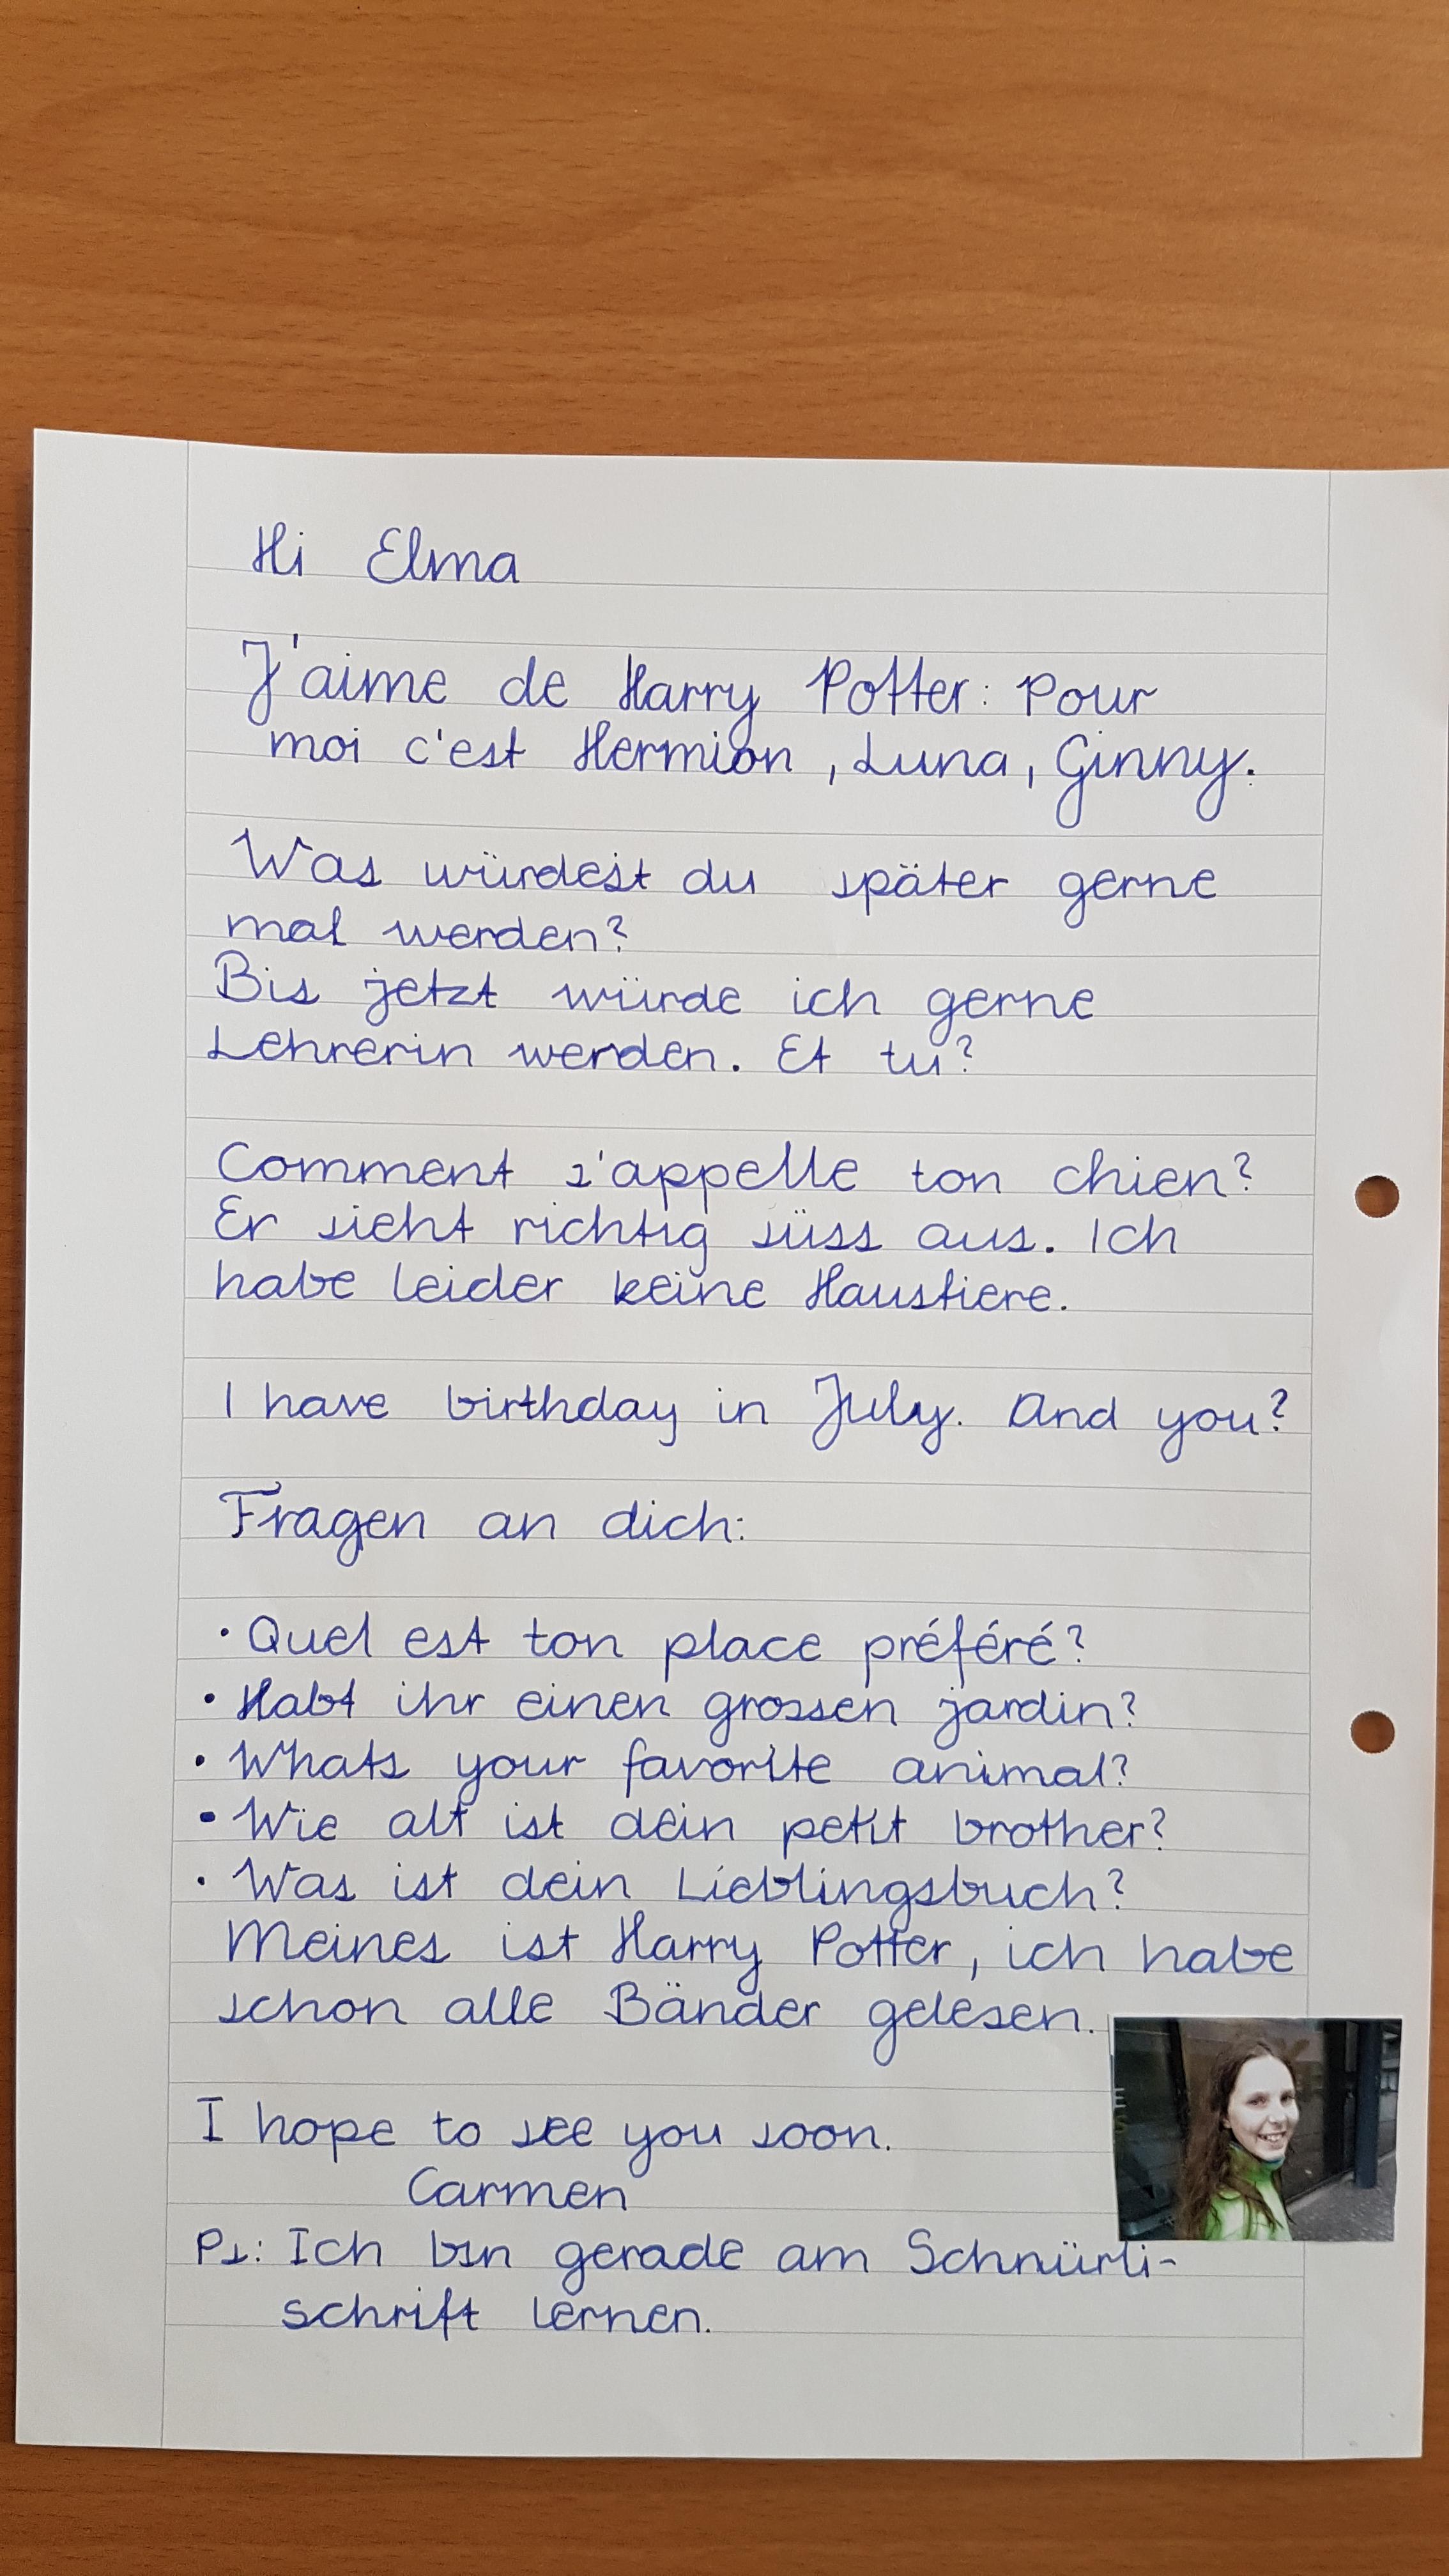 Hi Elma
J'aime de Harry Potter: Pour
moi c'est Hermion, Luna, Ginny.
Was würdest du später gerne
mal werden?
Bis jetzt würde ich gerne
Lehrerin werden. Et tu?
Comment s'appelle ton chien?
Er sieht richtig süss aus. Ich
habe leider keine Haustiere.
I have birthday in July. And you?
Fragen an dich:
• Quel est ton place préféré?
• Habt ihr einen grossen jardin?
• Whats your favorite animal?
• Wie alt ist dein petit brother?
• Was ist dein Lieblingsbuch?
Meines ist Harry Potter, ich habe
schon alle Bänder gelesen.
I hope to see you soon.
Carmen
Ps: Ich bin gerade am Schnürli-
schrift lernen.